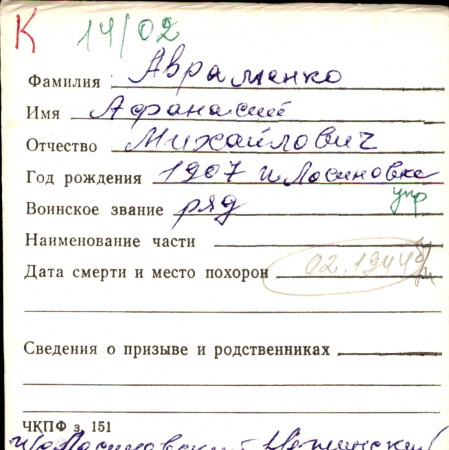 К 14/02
Фамилия Авраменко
Имя Афанасий
Отчество Михайлович
Год рождения 1907 Лосиновка
укр
Воинское звание ряд
Наименование части
Дата смерти и место похорон 02.1944 б/и
Сведения о призыве и родственниках
ЧКПФ з. 151
Лосиновский